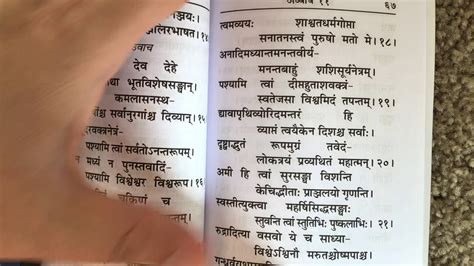 ञ्जयः।
भाषत। १४
वाच
देव देहे
भूतविशेषसङ्घान्।
कमलासनस्थ-
सर्वानुरगांश्च दिव्यान्। १५
वक्त्रनेत्रं-
पश्यामि त्वां सर्वतोऽनन्तरूपम्।
मध्यं न पुनस्तवादिं-
पश्यामि विश्वेश्वर विश्वरूप। १६
चक्रिणं च
अध्याय ११
६७
त्वमव्ययः शाश्वतधर्मगोप्ता
सनातनस्त्वं पुरुषो मतो मे। १८।
अनादिमध्यान्तमनन्तवीर्य-
मनन्तबाहुं शशिसूर्यनेत्रम्।
पश्यामि त्वां दीप्तहुताशवक्त्रं-
स्वतेजसा विश्वमिदं तपन्तम्। १९।
द्यावापृथिव्योरिदमन्तरं हि
व्याप्तं त्वयैकेन दिशश्च सर्वाः।
दृष्ट्वाद्भुतं रूपमुग्रं तवेदं-
लोकत्रयं प्रव्यथितं महात्मन्। २०।
अमी हि त्वां सुरसङ्घा विशन्ति
केचिद्भीताः प्राञ्जलयो गृणन्ति।
स्वस्तीत्युक्त्वा महर्षिसिद्धसङ्घाः
स्तुवन्ति त्वां स्तुतिभिः पुष्कलाभिः। २१।
रुद्रादित्या वसवो ये च साध्या-
विश्वेऽश्विनौ मरुतश्चोष्मपाश्च।